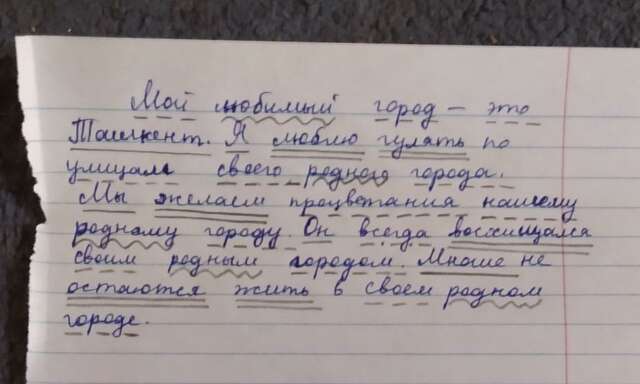 Мой любимый город – это
Ташкент. Я люблю гулять по
улицам своего родного города.
Мы желаем процветания нашему
родному городу. Он всегда восхищался
своим родным городом. Многие не
остаются жить в своем родном
городе.